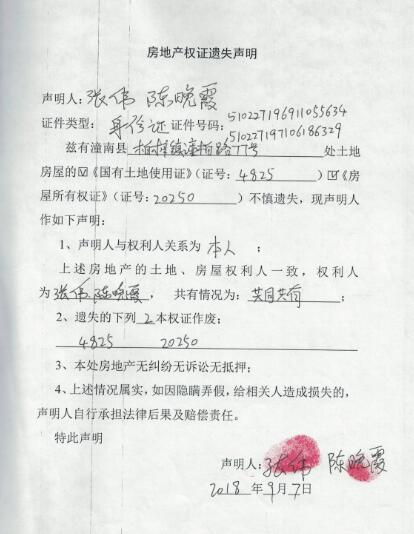 房地产权证遗失声明
声明人：张伟 陈晚霞
证件类型：身份证 证件号码：510227196911055634
510227197106186329
兹有潼南县柏梓镇潼柏路77号处土地
房屋的☑《国有土地使用证》（证号：4825）☑《房
屋所有权证》（证号：20250）不慎遗失，现声明人
作如下声明：
1、声明人与权利人关系为 本人 ；
上述房地产的土地、房屋权利人一致，权利人
为张伟 陈晚霞，共有情况为：共同共有；
2、遗失的下列 2 本权证作废：
4825 20250
3、本处房地产无纠纷无诉讼无抵押；
4、上述情况属实，如因隐瞒弄假，给相关人造成损失的，
声明人自行承担法律后果及赔偿责任。
特此声明
声明人：张伟 陈晚霞
2018 年 9 月 7 日